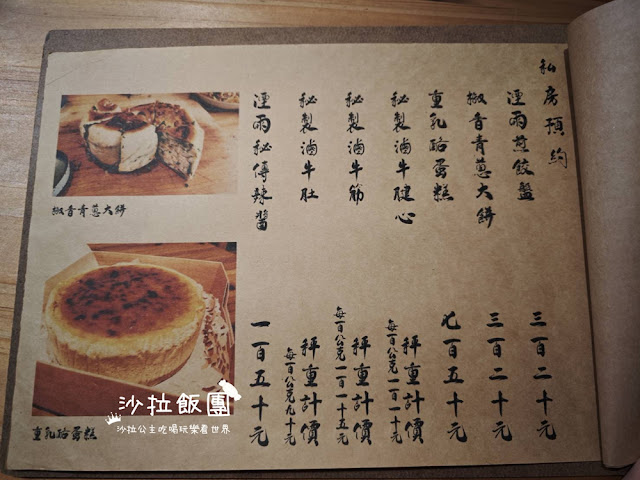 私房預約
湮雨煎餃盤
三百二十元
椒香青蔥大餅
三百二十元
重乳酪蛋糕
七百五十元
秘製滷牛腱心
秤重計價
每一百公克一百一十元
秘製滷牛筋
秤重計價
每一百公克一百一十五元
秘製滷牛肚
秤重計價
每一百公克九十元
湮雨秘傳辣醬
一百五十元
椒香青蔥大餅
重乳酪蛋糕
沙拉飯團
沙拉公主吃喝玩樂看世界